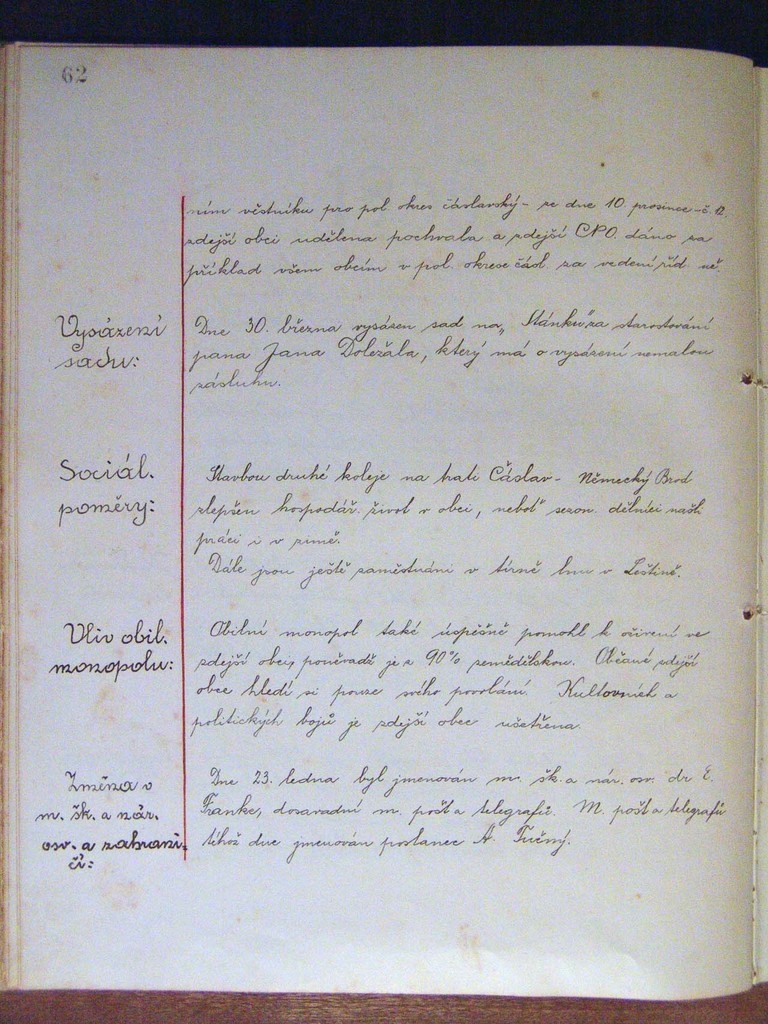 62
ním věstníku pro pol. okres čáslavský - ze dne 10. prosince - č. 12.
zdejší obci udělena pochvala a zdejší CPO. dáno za
příklad všem obcím v pol. okrese čásl. za vedení
Vysázení
sadu:
Dne 30. března vysázen sad na „Stánku" za starostování
pana Jana Doležala, který má o vysázení nemalou
zásluhu.
Sociál.
poměry:
Stavbou druhé koleje na trati Čáslav - Německý Brod
zlepšen hospodář. život v obci, neboť sezon. dělníci našli
práci i v zimě.
Dále jsou ještě zaměstnáni v tírně lnu v Leštině.
Vliv obil.
monopolu:
Obilní monopol také úspěšně pomohl k oživení ve
zdejší obci, poněvadž je z 90% zemědělskou. Občané zdejší
obce hledí si pouze svého povolání. Kulturních a
politických bojů je zdejší obec ušetřena.
Změna v
m. šk. a nár.
osv. a zahrani-
čí:
Dne 23. ledna byl jmenován m. šk. a nár. osv. dr E.
Franke, dosavadní m. pošt a telegrafů. M. pošt a telegrafů
téhož dne jmenován poslanec A. Tučný.